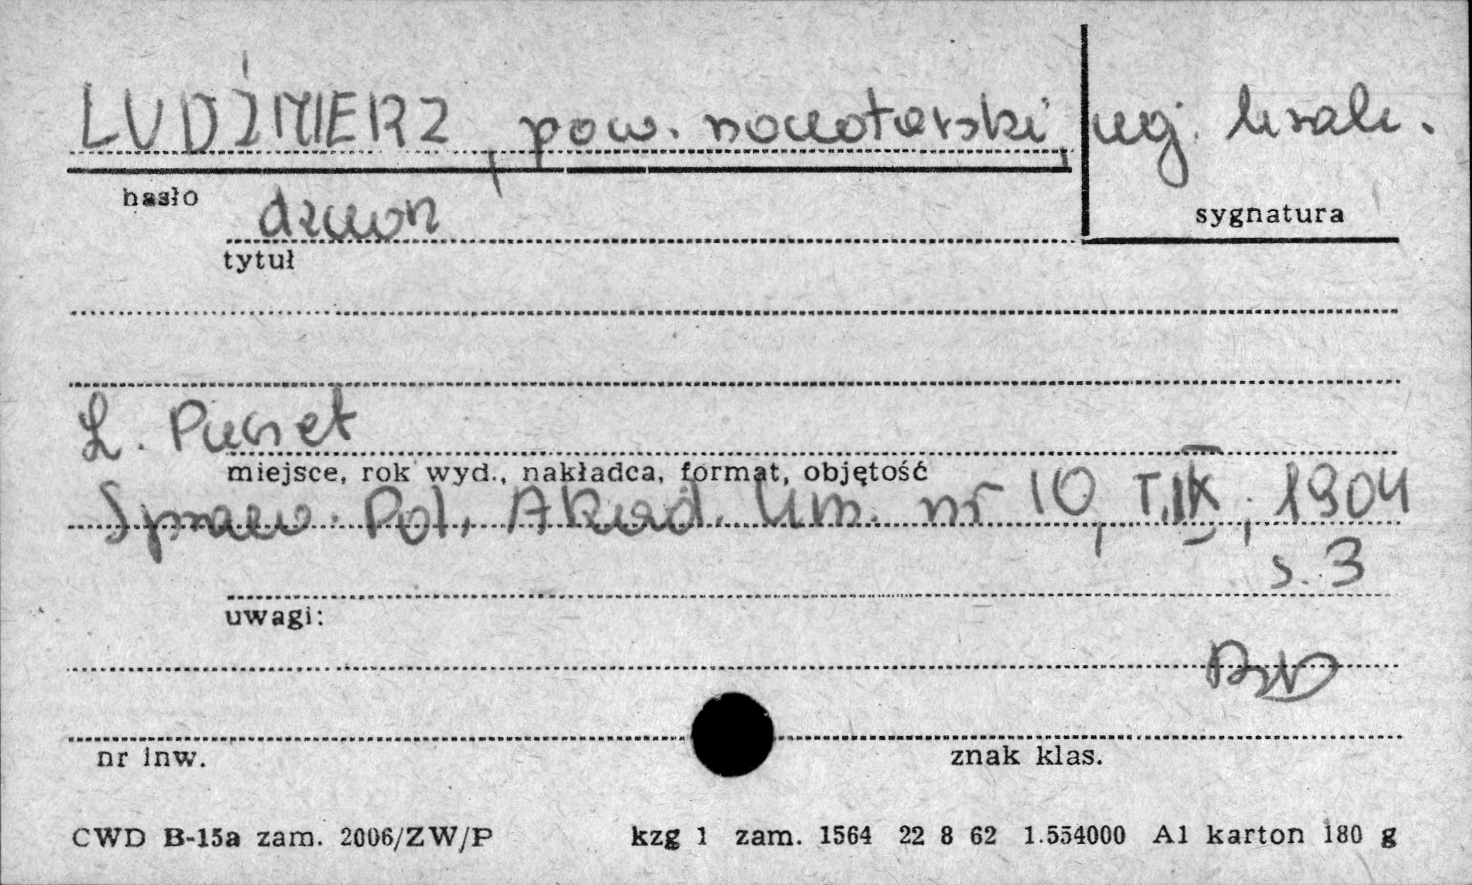 LUDŹMIERZ, pow. nowotarski, woj. krak.
hasło
sygnatura
dzwon
tytuł
L. Puszet
miejsce, rok wyd., nakładca, format, objętość
Spraw. Pol. Akad. Um. nr 10, T. IX, 1904
s. 3
uwagi:
nr inw.
znak klas.
CWD B-15a zam. 2006/ZW/P kzg 1 zam. 1564 22 8 62 1.554000 A1 karton 180 g